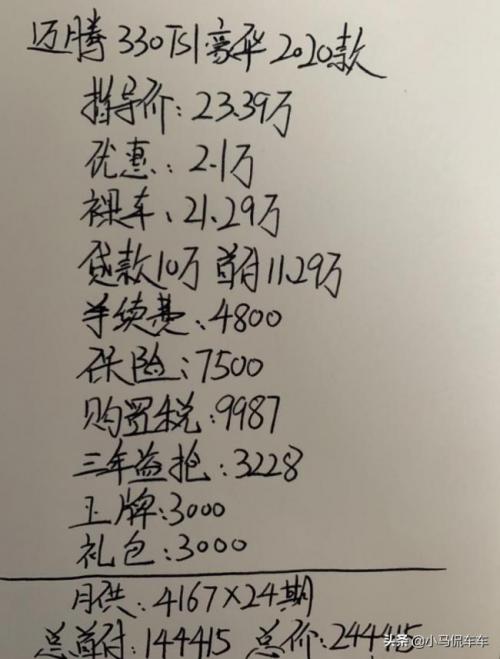 迈腾 330TSI豪华 2020款
指导价:23.39万
优惠:2.1万
裸车、21.29万
贷款10万 首付11.29万
手续费:4800
保险:7500
购置税:9987
三年盗抢:3228
上牌:3000
礼包:3000
月供:4167×24期
总首付:144415 总价:244415
头条@小马侃车车